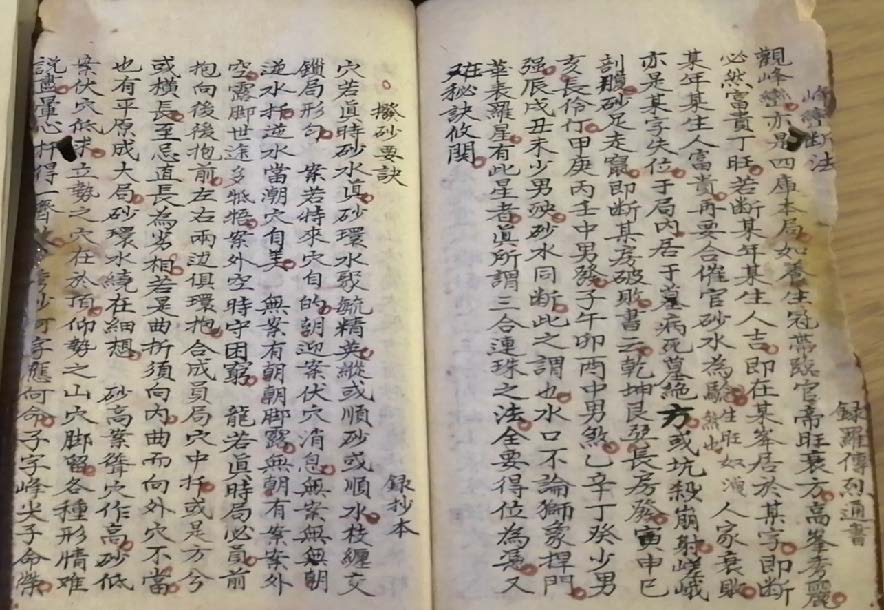 峰巒断法
錄羅傳烈通書
觀峰巒亦是四庫本局如養生冠帶臨官帝旺衰方高峯秀麗
必然富貴丁旺若斷某年某生人吉即在某峯居於某字即断
某年某生人富貴再要合催官砂水為驗然也生旺如演人家衰敗
亦是某字失位于局内居于墓病死墓絶方或坑殺崩射嵯峨
剖膊砂足走竄即断某房破敗書云乾坤艮巽長房廢寅申巳
亥長伶仃甲庚丙壬中男發子午卯酉中男煞乙辛丁癸少男
强辰戌丑未少男殃砂水同断此之謂也水口不論獅象捍門
華表羅星有此星者真所謂三合連珠之法全要得位為憑又
在秘訣攸関
撥砂要訣
錄抄本
穴若真時砂水真砂環水聚毓精英縱或順砂或順水枝纏交
鎖局形勾 案若特來穴自的朝迎案伏穴消息無案無朝
逆水扦逆水當潮穴自美 無案有朝朝脚露無朝有案案外
空露脚世途多牴牾案外空時守困窮 龍若真時局必員前
抱向後後抱前左右兩边俱環抱合成員局穴中扦或是方兮
或横長至忌直長為劣相若是曲折須向内曲而向外穴不當
也有平原成大局砂環水繞在細想 砂高案聳穴作高砂低
案伏穴低求立勢之穴在於頂仰勢之山穴脚留各種形情难
説盡單心扦得一齊砂何字應何命子字峰尖子命榮